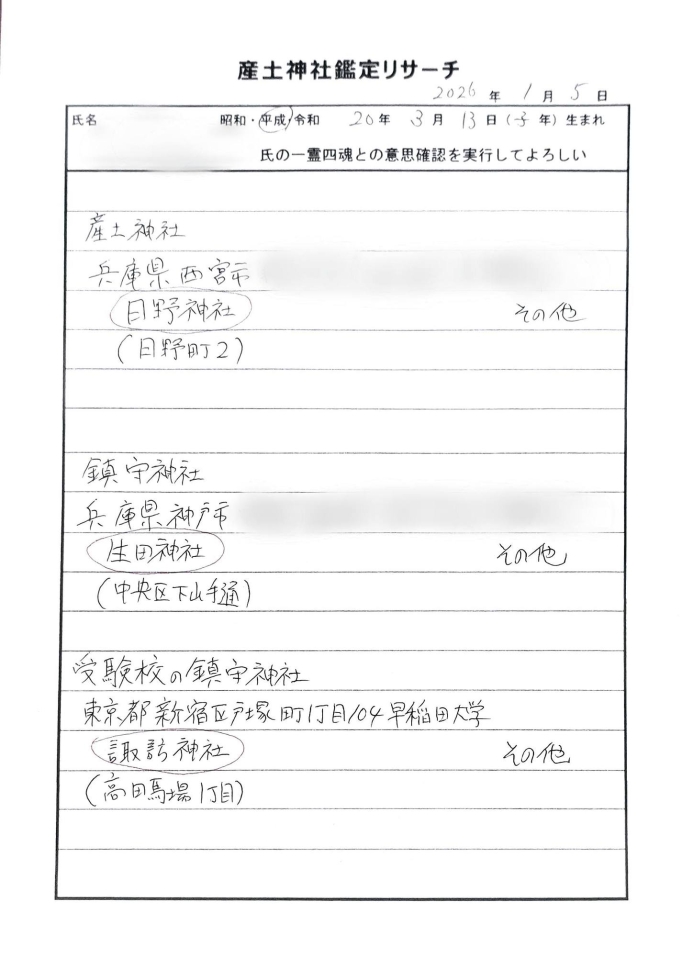 産土神社鑑定リサーチ
2026年1月5日
氏名 昭和・平成・令和 20年3月13日(子年)生まれ
氏の一霊四魂との意思確認を実行してよろしい
産土神社
兵庫県西宮市
日野神社 その他
(日野町2)
鎮守神社
兵庫県神戸市
生田神社 その他
(中央区下山手通)
受験校の鎮守神社
東京都新宿区戸塚町1丁目104早稲田大学
諏訪神社 その他
(高田馬場1丁目)